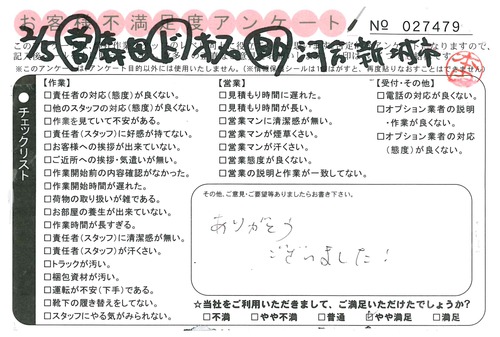 お客様不満足度アンケート
No 027479
2/5
チェックリスト
【作業】
□責任者の対応(態度)が良くない。
□他のスタッフの対応(態度)が良くない。
□作業を見ていて不安がある。
□責任者(スタッフ)に好感が持てない。
□お客様への挨拶が出来ていない。
□ご近所への挨拶・気遣いが無い。
□作業開始前の内容確認がなかった。
□作業開始時間が遅れた。
□荷物の取り扱いが雑である。
□お部屋の養生が出来ていない。
□作業時間が長すぎる。
□責任者(スタッフ)に清潔感が無い。
□責任者(スタッフ)が汗くさい。
□トラックが汚い。
□梱包資材が汚い。
□運転が不安(下手)である。
□靴下の履き替えをしてない。
□スタッフにやる気がみられない。
【営業】
□見積もり時間に遅れた。
□見積もり時間が長い。
□営業マンに清潔感が無い。
□営業マンが煙草くさい。
□営業マンが汗くさい。
□営業態度が良くない。
□営業の説明と作業が一致してない。
【受付・その他】
□電話の対応が良くない。
□オプション業者の説明
・作業が良くない。
□オプション業者の対応
(態度)が良くない。
その他、ご意見・ご要望等ありましたらお書き下さい。
ありがとう
ございました!
☆当社をご利用いただきまして、ご満足いただけたでしょうか?
□不満 □やや不満 □普通 □やや満足 □満足